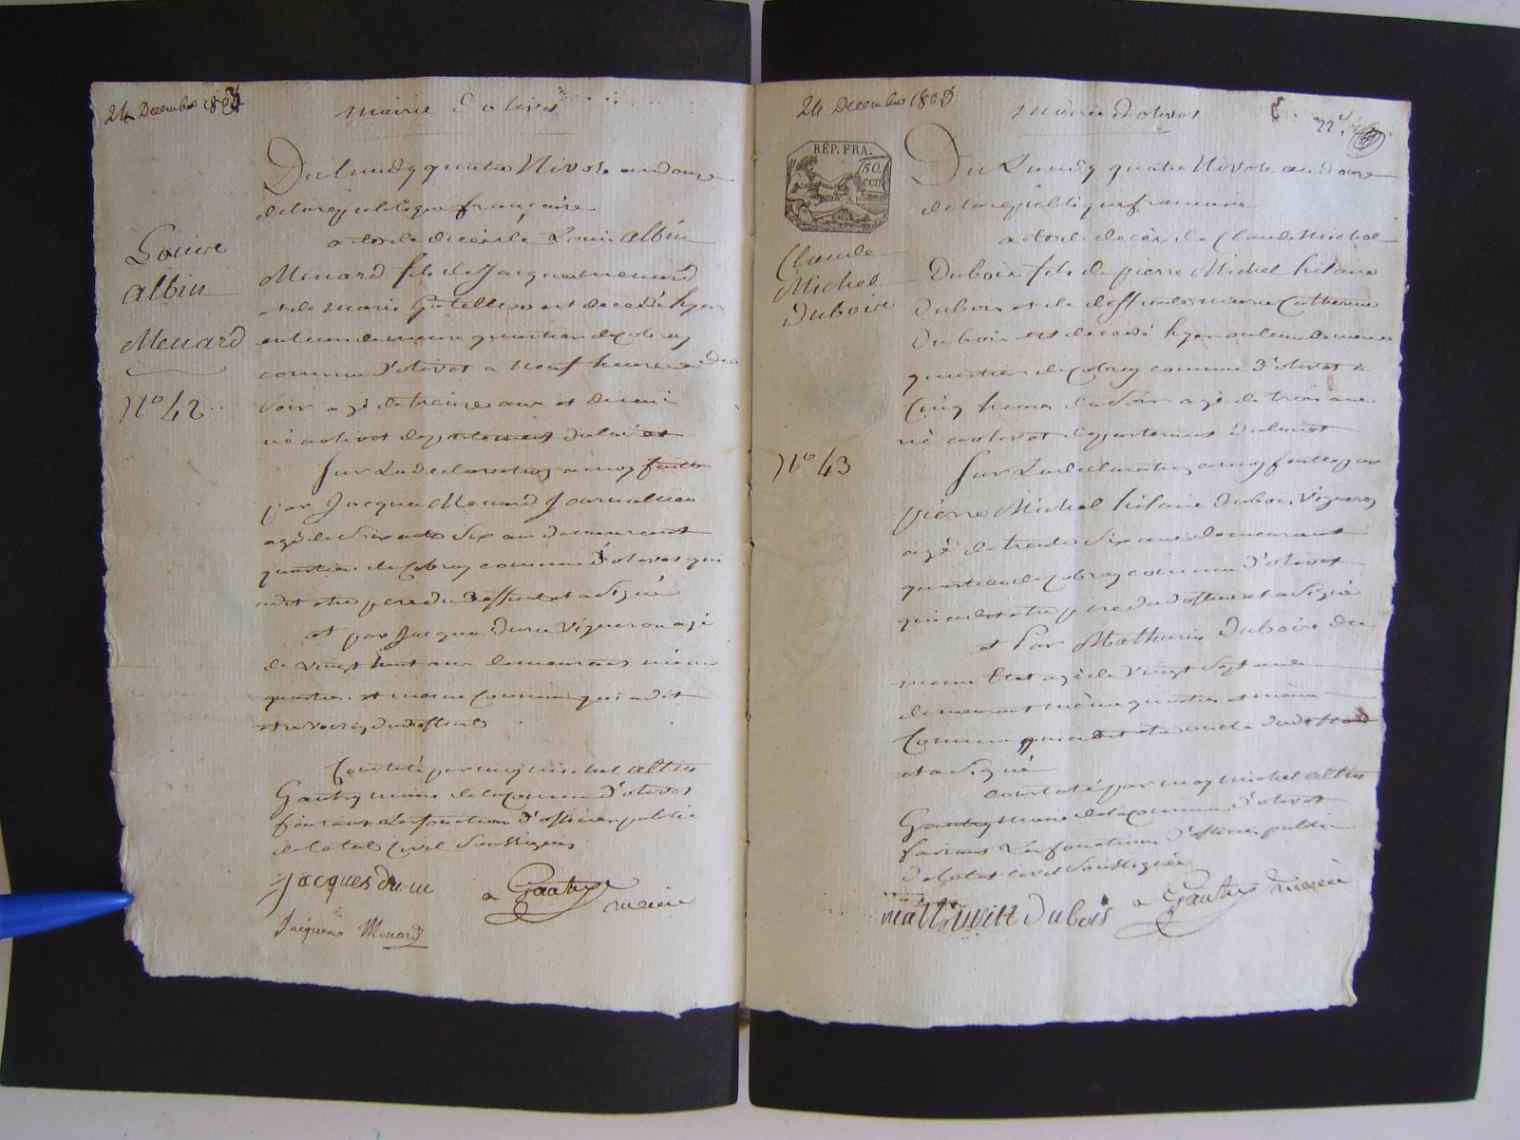 24 Decembre 1803
mairie d'olivet
Du lundy quatre Nivose an douze
de la republique française
acte de decès de Louis Albin
Menard fils de Jacques menard
et de marie est decedé hyer
quartier de Cobray
commune d'olivet a neuf heures du
soir agé de treize ans et demi
né a olivet departement du loiret
Sur la declaration a moy faitte
par Jacques Menard Journallier
agé de six ans demeurant
quartier de Cobray commune d'olivet qui
a dit etre pere du deffunt et a signé
et par Jacques Duru vigneron agé
de vingt huit ans demeurant même
quartier et meme commune qui a dit
etre voisin du deffunt
Constaté par moy michel albin
Gautry maire de la commune d'olivet
faisant les fonctions d'officier public
de l'etat civil soussigné
jacques duru
a Gautry
maire
Jacques Menard
Louis
Albin
Menard
N° 42
24 Decembre 1803
mairie d'olivet
22
RÉP. FRA.
50
CEN
Du Lundy quatre Nivose an douze
de la republique francaise
acte de decès de Claude Michel
Dubois fils de pierre Michel hilaire
Dubois et de deffunte marie Catherine
Dubois est decedé hyer
quartier de Cobray commune d'olivet a
Cinq heures du soir agé de trois ans
né a olivet departement du loiret
Sur la declaration a moy faitte par
pierre Michel hilaire Dubois Vigneron
agé de trente six ans demeurant
quartier de Cobray commune d'olivet
qui a dit etre pere du deffunt et a signé
et Par Mathurin Dubois du
meme Etat agé de vingt sept ans
demeurant même quartier et même
Commune qui a dit etre oncle du deffunt
et a signé
Constaté par moy michel albin
Gautry maire de la commune d'olivet
faisant les fonctions d'officier public
de l'etat civil soussigné
Dubois
a Gautry maire
Claude
Michel
Dubois
N° 43